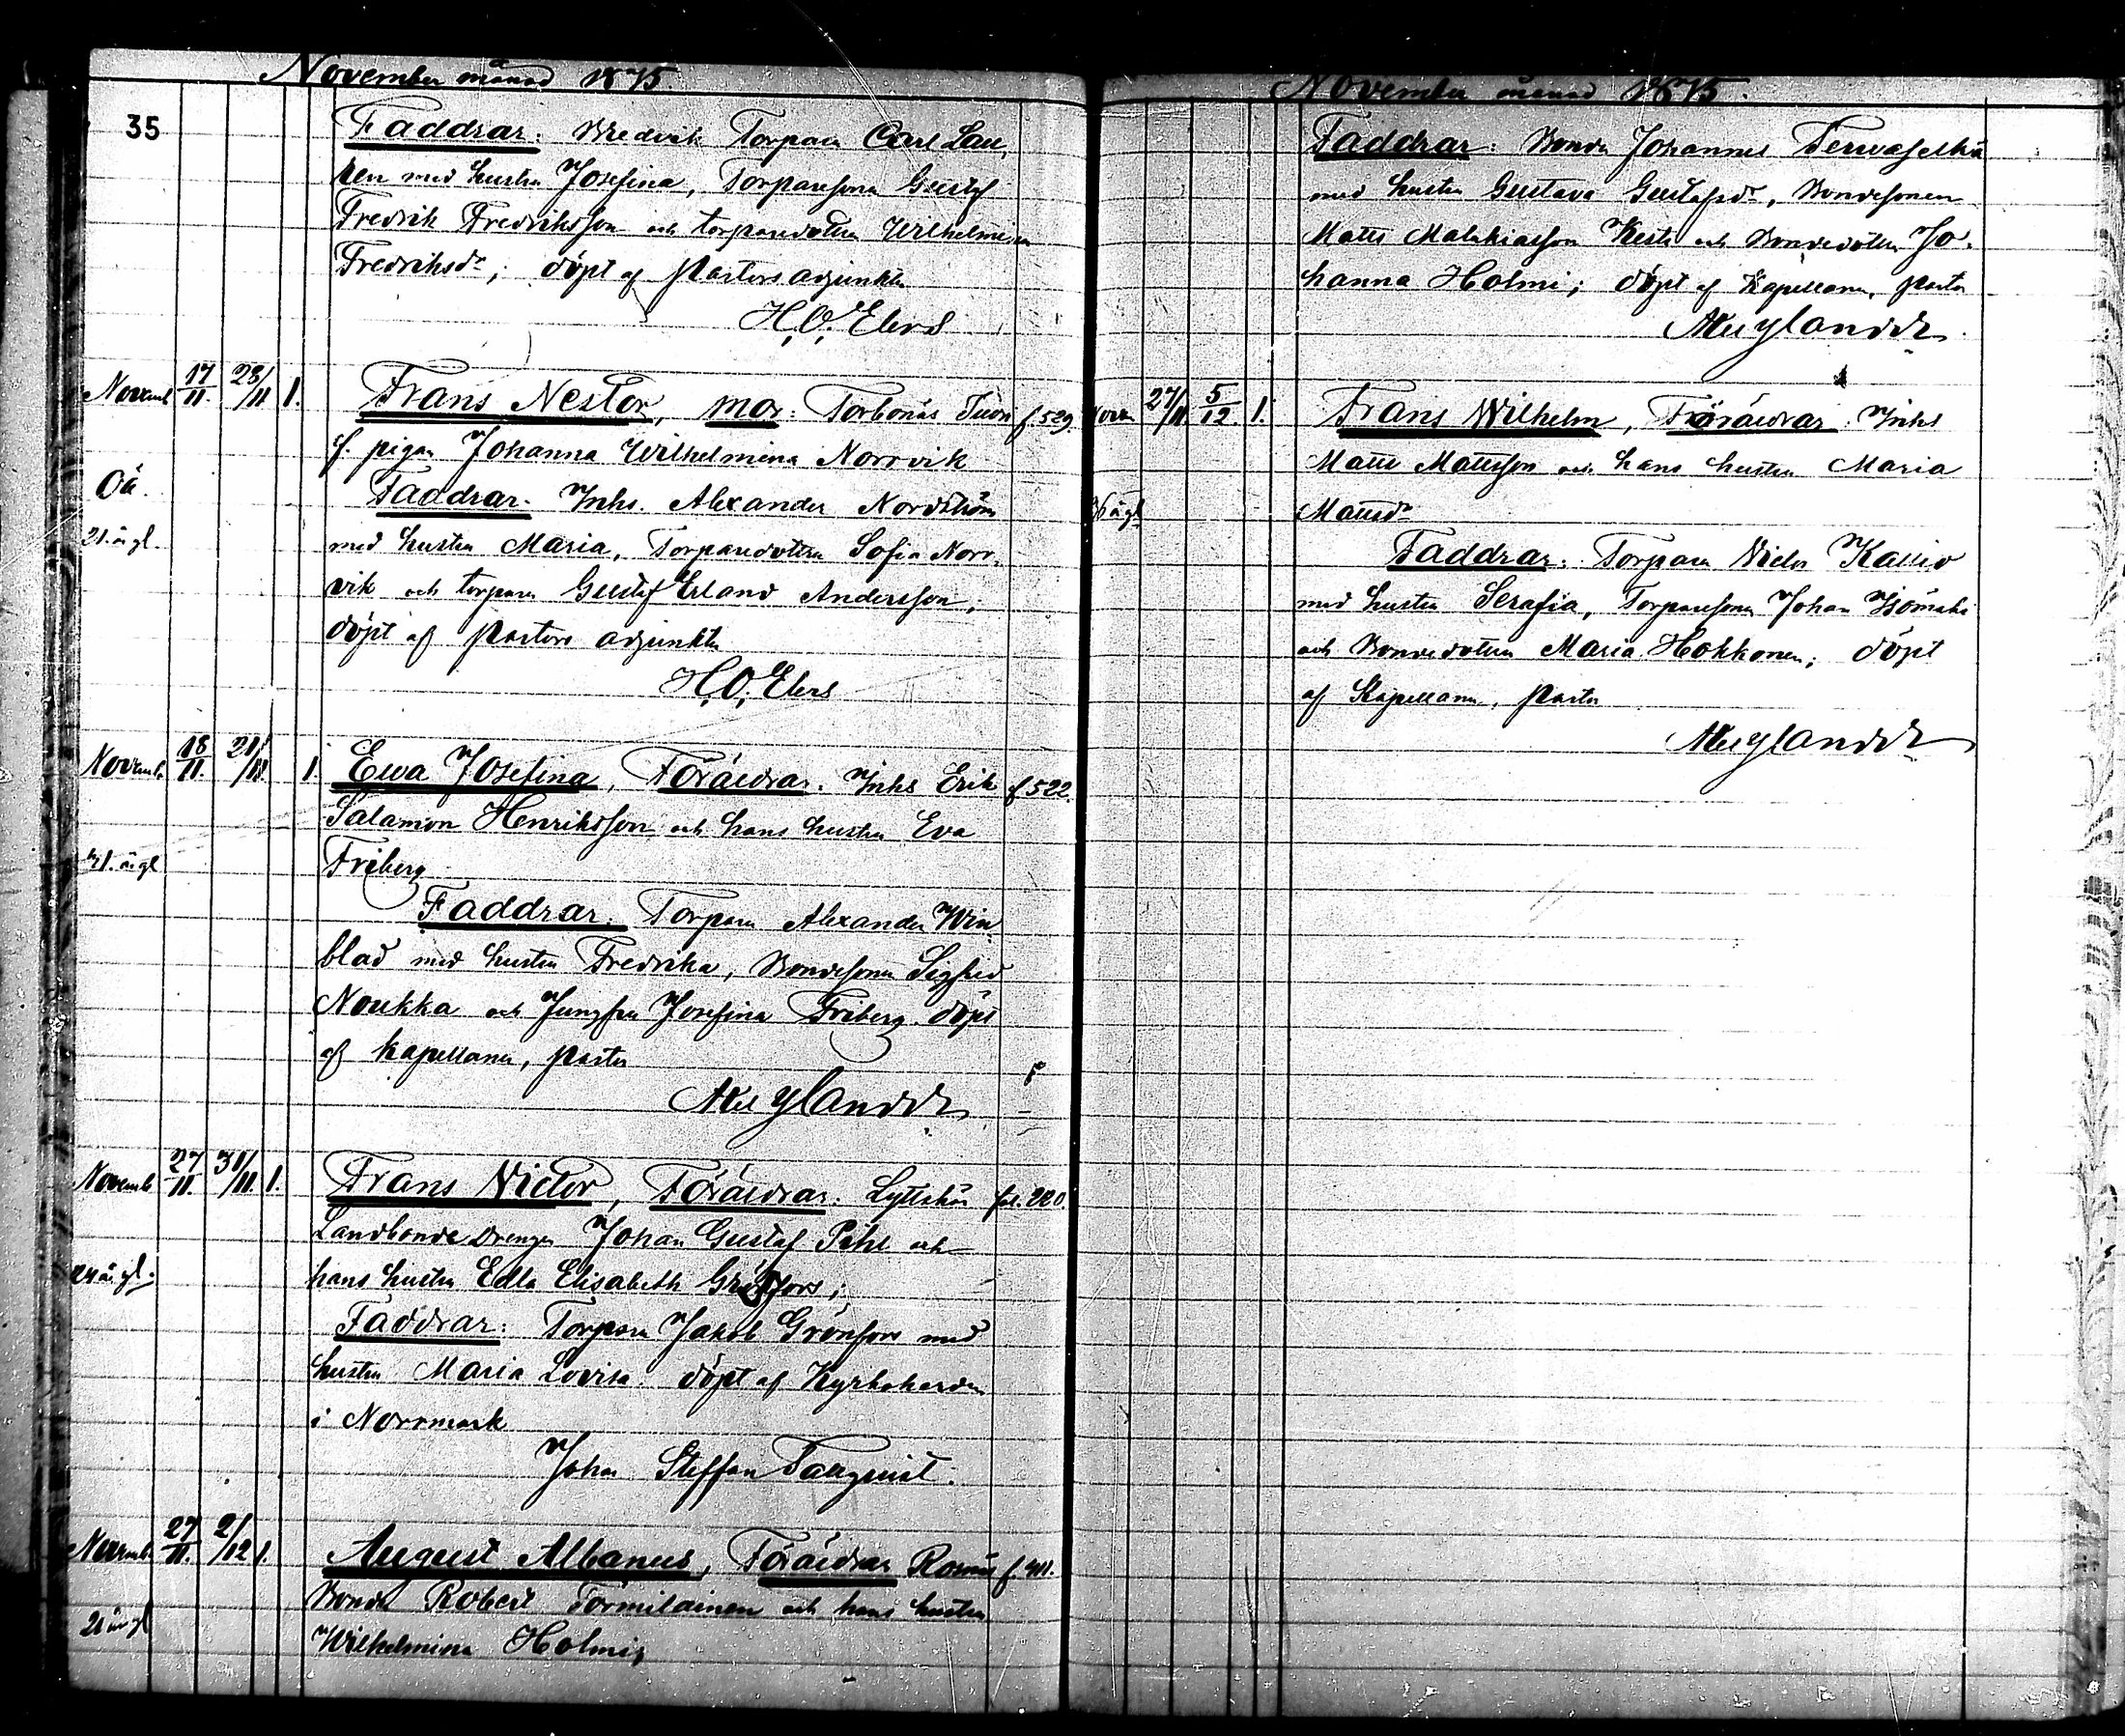 November månad 1875.
35
Faddrar: Torpare Carl Lau,
ren med hustru Josefina, Torparesonen Gustaf
Fredrik Fredriksson och torparedottren Wilhelmina
Fredriksdr; döpt af Pastors adjunkten
H. O. Elers
Novemb 17/11. 28/11 1. Frans Nestor, mor: Torbonäs f. 529.
f. pigan Johanna Wilhelmina Norrvik
Oä.
Faddrar. Inhs. Alexander Nordström
21. årgl. med hustru Maria, Torparedottren Sofia Norr,
vik och torparen Gustaf Erland Andersson;
döpt af Pastors adjunkten
H. O. Elers
Novemb. 18/11. 21/11. 1. Ewa Josefina, Föräldrar. Inhs Erik f 522.
Salamon Henriksson och hans hustru Eva
41. årgl Friberg
Faddrar: Torparen Alexander Win,
blad med hustru Fredrika, Bondesonen Sigfrid
Noukka och Jungfru Josefina Friberg. döpt
af kapellanen, Pastor
Nylander
Novemb 27/11. 1. Frans Victor, Föräldrar: Lyttskär fol. 220.
Landbonde Drengen Johan Gustaf Pihl och
24 årgl. hans hustru Edla Elisabeth Grönfors;
Faddrar: Torparen Jakob Grönfors med
hustru Maria Lovisa. döpt af Kyrkoherden
i Norrmark
Johan Steffan Tallqvist.
Novemb. 27/11. 2/12 1. August Albanus, Föräldrar Rosnäs f. 411.
Bonden Robert Törmilainen och hans hustru
21 årgl Wilhelmina Holmi,
November månad 1875.
Faddrar: Bonden Johannes
med hustru Gustava Gustafsdr, Bondesonen
Matts Malakiasson Kesti och Bondedottren Jo,
hanna Holmi; döpt af Kapellanen, Pastor
Nylander
Novem 27/11. 5/12. 1. Frans Wilhelm, Föräldrar. Inhs
Matts Mattsson och hans hustru Maria
årgl Mattsdr
Faddrar: Torparen Victor Kallio
med hustru Serafia, Torparesonen Johan
och Bondedottren Maria Hokkonen; döpt
af Kapellanen, Pastor
Nylander